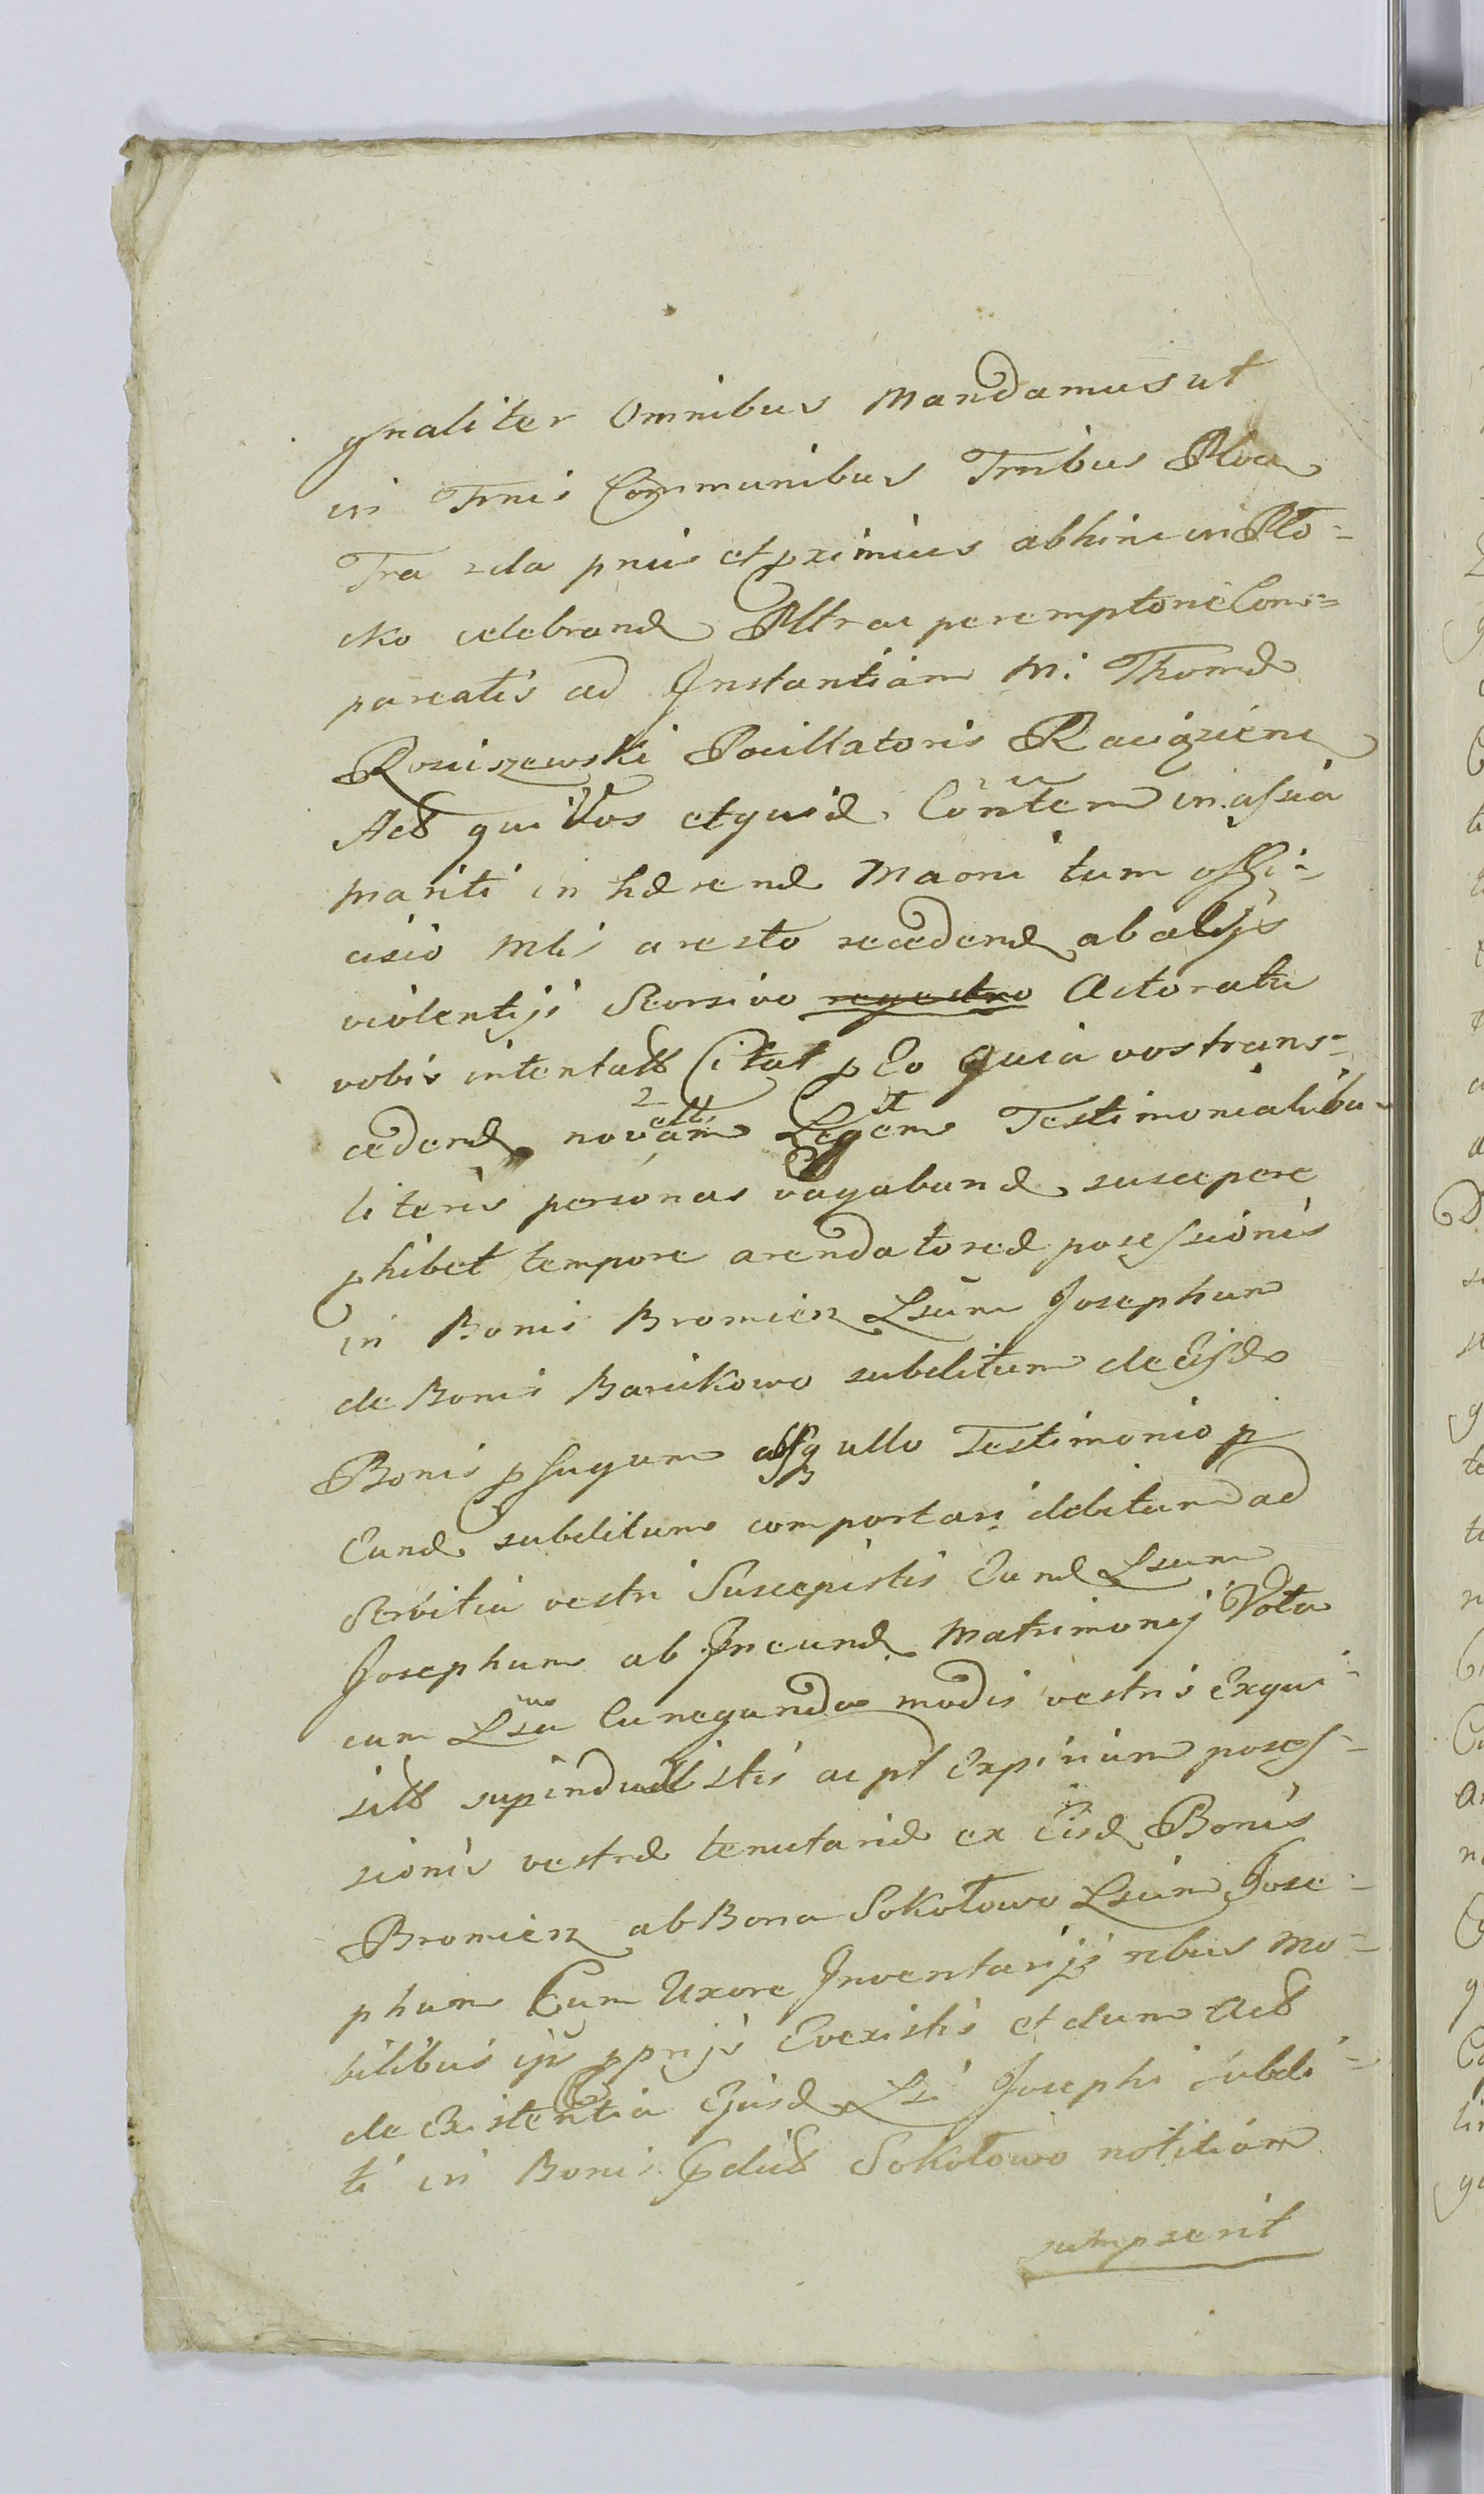 gnaliter Omnibus Mandamus ut
in Trnis Communibus Trnibus Ploc
Tra 2da pnis et pximius abhinc in Plo=
cko celebrand Pltrae peremptorie Com=
pareatis ad Instantiam M: Thomæ
Rosciszewski Pocillatoris Raciązien
Act qui Vos etquid. Conntem in assia
mariti in hærend Maoni tum offi=
cisio Mtis aresto recedend ab alijs
violentijs Seorsivo regestro Actoratu
vobis intentatt Citat p Eo Quia vos trans=
cedend novam Legem Testimonialibu
literis personas vagabund suscepere
phibet tempore arendatoreæ possessionis
in Bonis Bromierz Lsum Josephum
de Bonis Barcikowo subditum de Eisd
Bonis pfugum absq ullo Testimonio p
Eund subditum comportari debitum ad
Servitia vestri Suscepistis Eund Lsum
Josephum ab Ineund Matrimonij Vota
cum Lsa Cunegunda modis vestris Exqui=
sitt supinduxistis ac pt Expirium posses=
sionis vestræ tenutariæ ex Eisd Bonis
Bromierz ab Bona Sokołowo Lsum Jose=
phum Cum Uxore Inventarijs rebus mo=
bilibus ijs pprijs Evexistis et dum Act
de Existentia Ejusd Lsi Josephi subdi=
ti in Bonis pdict Sokołowo notitiam
sumpserit